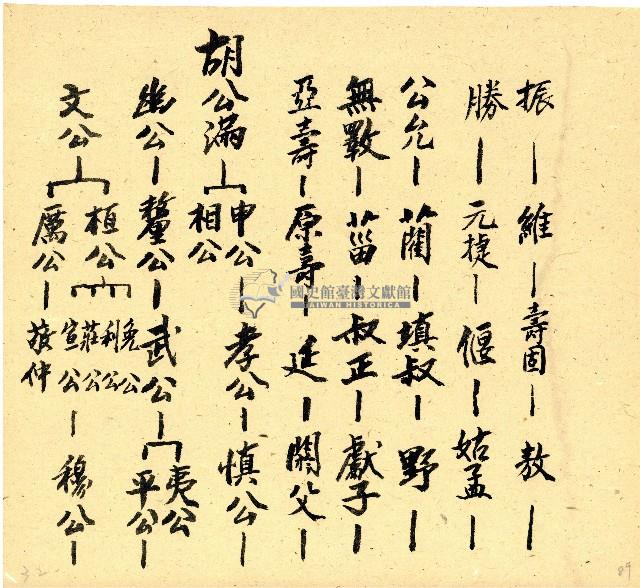 振—維—壽固—敖—
勝—元捷—偃—姑孟—
公允—蘭—填叔—野—
無數—菑—叔正—獻子—
亞壽—原壽—廷—閼父—
胡公滿—申公—孝公—慎公—
相公
幽公—釐公—武公—夷公
平公—
文公—桓公—免公 利公 莊公 宣公—穆公—
厲公—敬仲
國史館臺灣文獻館
TAIWAN HISTORICA
32
89